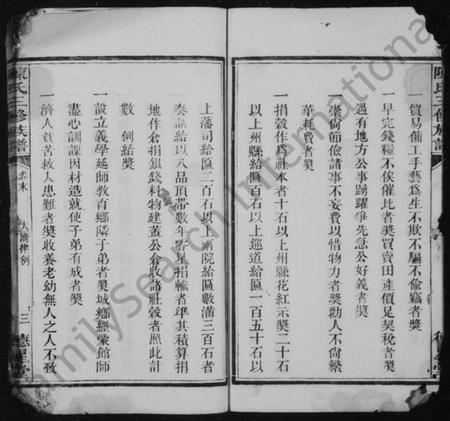 陳氏三修族譜
一貿易傭工手藝爲生不欺不騙不偷竊者獎
一早完錢糧不俟催比者獎買賣田產價足契稅者獎
過有地方公事踴躍爭先急公好義者獎
一崇尚節儉諸事不妄費以惜物力者獎勸人不尙繁
華糜費者獎
一捐穀作爲社本者十石以上州縣花紅示獎二十石
以上州縣給匾百石以上巡道給匾一百五十石以
上藩司給匾二百石以上兩院給匾數滿三百石者
奏請給以八品頂帶數年內捐輸者準其積算捐
地作倉捐銀錢料物建蓋公倉收諸社穀者照此計
數例給獎
一設立義學延師教育鄉隣子弟者獎城鄉經蒙館師
盡心訓課因材造就使子弟有成者獎
一濟人貧苦救人患難者獎收養老幼無人之人不致
陳氏三修族譜
卷末
大清律例
三
德星堂
FamilySearch International